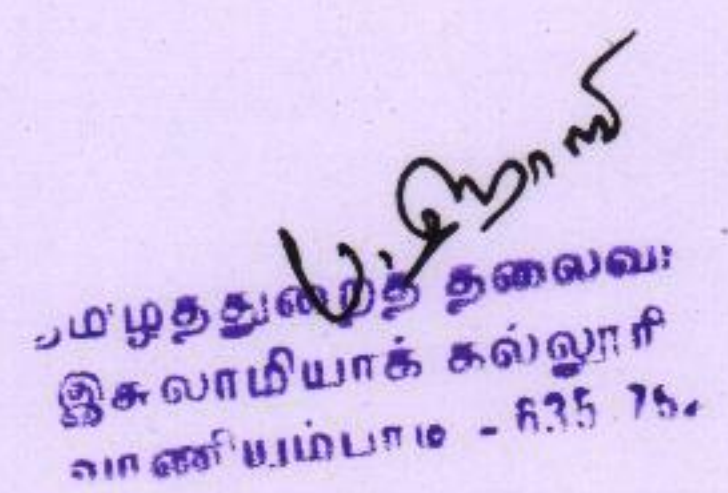 தமிழ்த்துறைத் தலைவர்
இசுலாமியாக் கல்லூரி
வாணியம்பாடி - 635 75